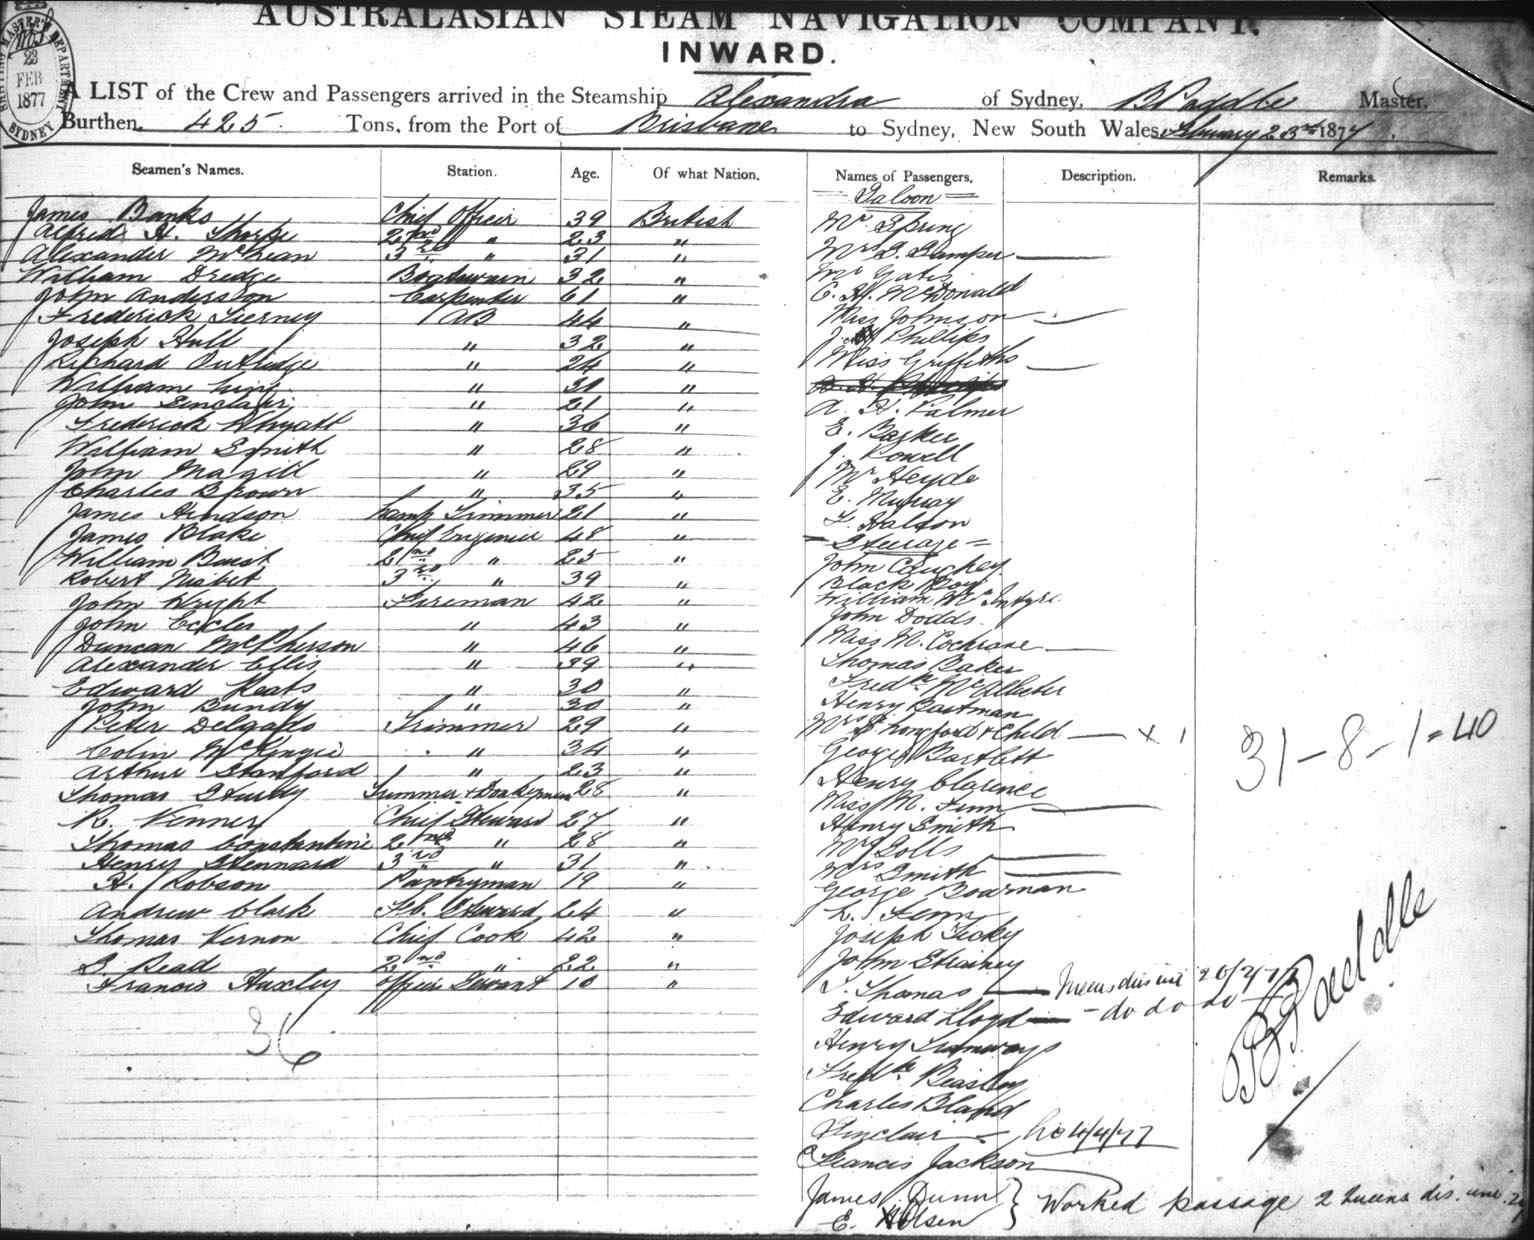 AUSTRALASIAN STEAM NAVIGATION COMPANY.
INWARD.
28 FEB 1877 SYDNEY
A LIST of the Crew and Passengers arrived in the Steamship Alexandra of Sydney, B Paddle Master,
Burthen 425 Tons, from the Port of Brisbane to Sydney, New South Wales February 23rd 1877.
Seamen's Names. Station. Age. Of what Nation. Names of Passengers, Description. Remarks.
James Banks Chief Officer 39 British
Alfred H. Thorpe 2nd " 23 "
Alexander McBean 3rd " 31 "
William Dredge Boatswain 32 "
John Anderson Carpenter 61 "
Frederick Tierney AB 44 "
Joseph Hull " 32 "
Richard Outlidge " 24 "
William King " 30 "
John Sinclair " 21 "
Frederick Whyatt " 36 "
William Smith " 28 "
John Magill " 29 "
Charles Brown " 35 "
James Hindson Lamp Trimmer 21 "
James Blake Chief Engineer 48 "
William Buist 2nd " 25 "
Robert Nisbet 3rd " 39 "
John Wright Fireman 42 "
John Eccles " 43 "
Duncan McPherson " 46 "
Alexander Ellis " 39 "
Edward Keats " 30 "
John Bundy " 30 "
Peter Delgado Trimmer 29 "
Colin McKenzie " 34 "
Arthur Stanford " 23 "
Thomas Sturdy Trimmer & Donkeyman 28 "
R. Venner Chief Steward 27 "
Thomas Constantine 2nd " 28 "
Henry Stennard 3rd " 31 "
H. Robson Pantryman 19 "
Andrew Clark F.C. Steward 24 "
Thomas Vernon Chief Cook 42 "
S. Read 2nd " 22 "
Francis Huxley Officer Servant 18 "
36
Saloon
Mr Spring
Mr D. Damper
Mr Yates
C. H. McDonald
Miss Johnson
J. Phillips
Miss Griffiths
A. H. Palmer
E. Barker
J. Powell
Mr Heyde
E. Murray
F. Halton
Steerage
John Caughey
Black Boy
William McIntyre
John Dodds
Miss M. Cochrane
Thomas Baker
Fredk McAllister
Henry Eastman
Mrs Longford & Child x 1
George Bartlett
Henry Clarence
Miss M. Finn
Henry Smith
Mrs Golls
Mrs Smith
George Bowman
L. Finn
Joseph Ticky
John Strainey
T. Thomas
Edward Lloyd - do do do
Henry Tramways
Fredk Beasley
Charles Bland
Sinclair 4/4/77
Francis Jackson
James Dunn
E. Olsen } Worked passage 2
31-8-1=40
B Paddle